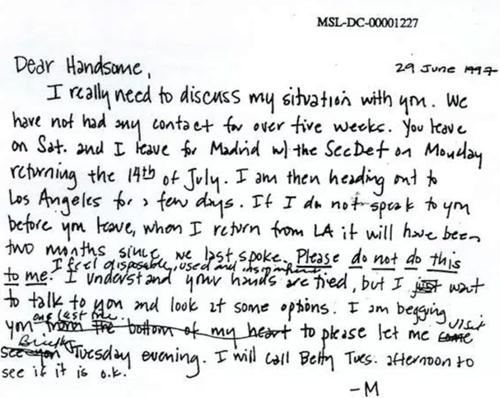 MSL-DC-00001227
Dear Handsome,
29 June 1997
I really need to discuss my situation with you. We
have not had any contact for over five weeks. You leave
on Sat. and I leave for Madrid w/ the SecDef on Monday
returning the 14th of July. I am then heading out to
Los Angeles for a few days. If I do not speak to you
before you leave, when I return from LA it will have been
two months since we last spoke. Please do not do this
I feel disposable, used and insignificant.
to me. I understand your hands are tied, but I just want
to talk to you and look at some options. I am begging
one last time visit
you from the bottom of my heart to please let me come
Briefly
see you Tuesday evening. I will call Betty Tues. afternoon to
see if it is o.k.
-M